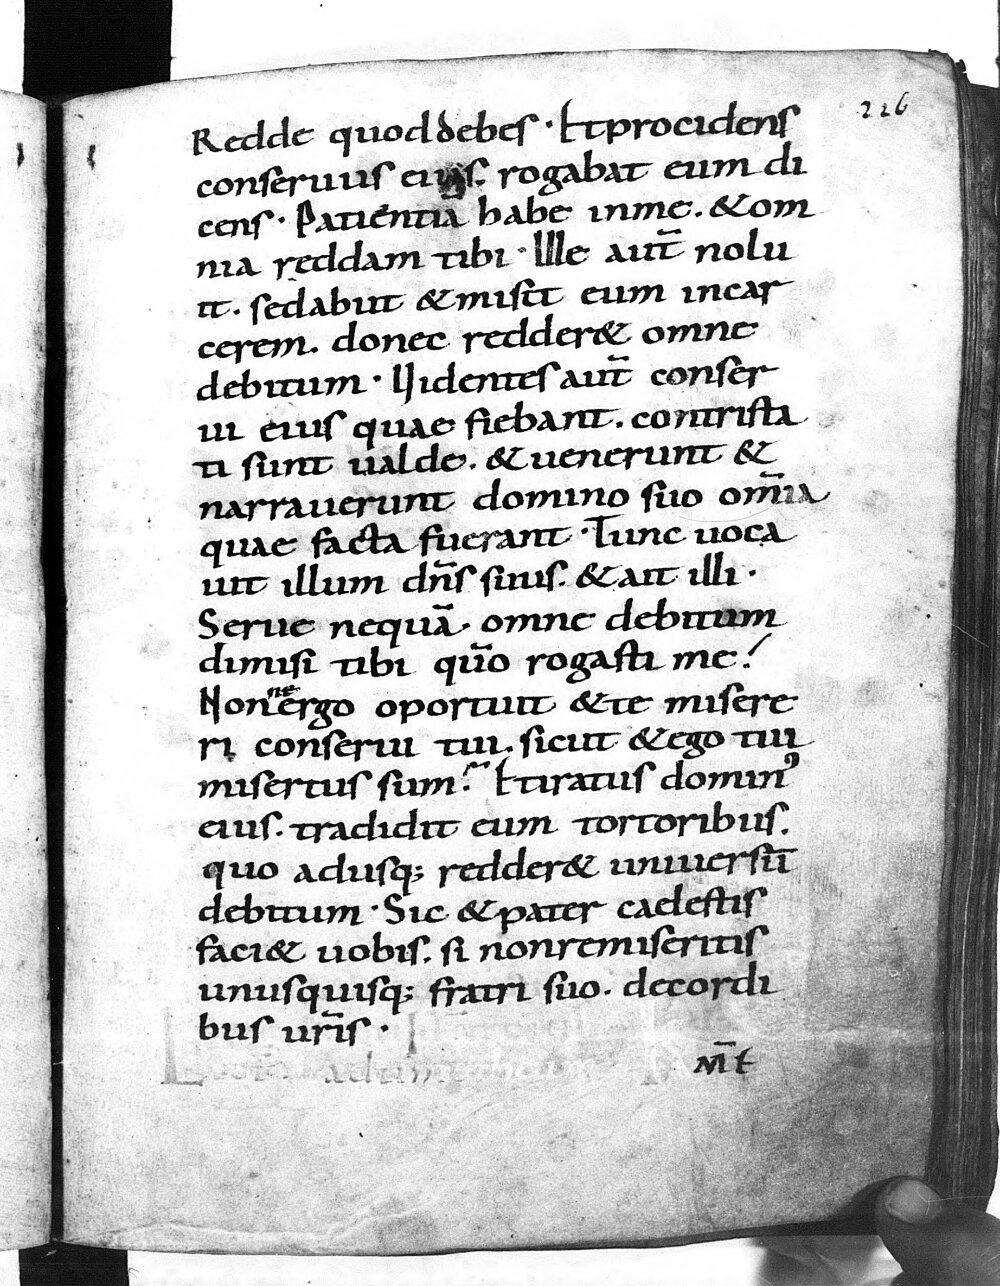 226
Redde quod debes · Et procidens
conseruus eius. rogabat eum di
cens · Patientia habe in me. & om
nia reddam tibi · Ille aut̄ nolu
it. sed abiit & misit eum incar
cerem. donec redder& omne
debitum · Uidentes aut̄ conser
ui eius quae fiebant. contrista
ti sunt ualde. & uenerunt &
narrauerunt domino suo om̄ia
quae facta fuerant · Tunc uoca
uit illum dn̄s suus. & ait illi ·
Serue nequā. omne debitum
dimisi tibi qūo rogasti me!
Nonne ergo oportuit & te misere
ri conserui tui. sicut & ego tui
misertus sum? Et iratus domin᾽
eius. tradidit eum tortoribus.
quo adusq; redder& uniuersū
debitum · Sic & pater caelestis
faci& uobis. si non remiseritis
unusquisq; fratri suo. de cordi
bus ur̄is ·